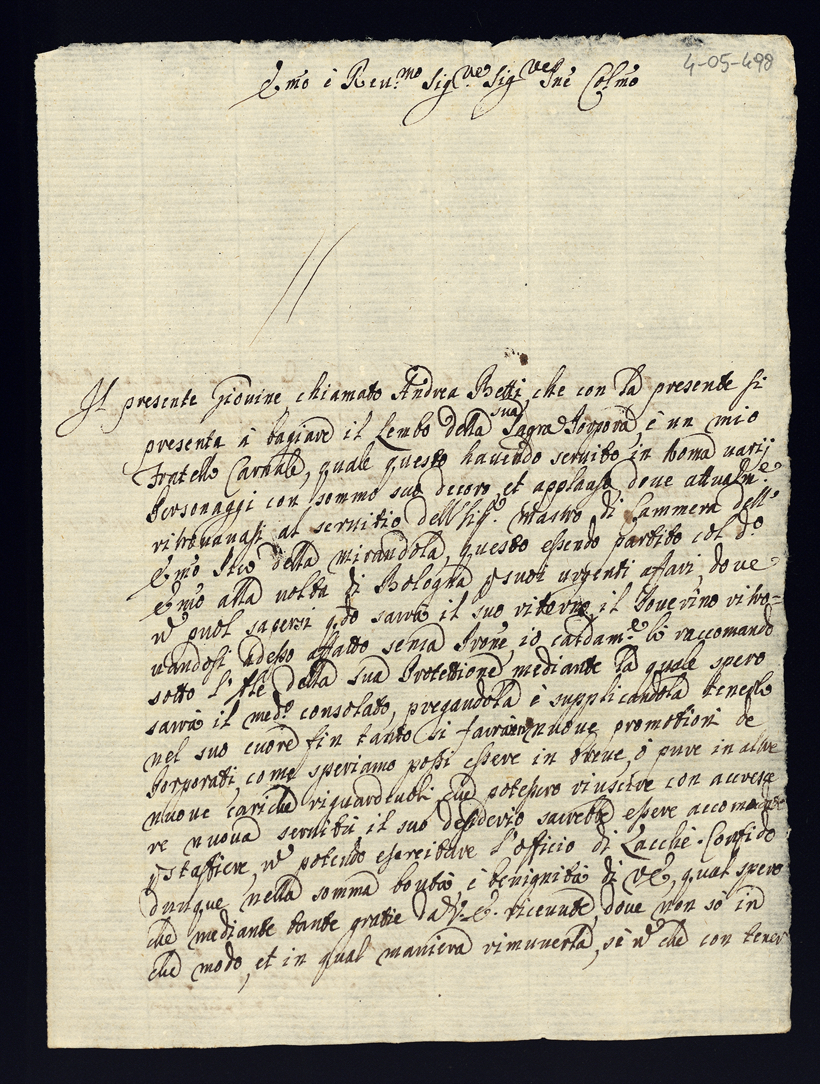 4-05-498
Em̃o è Reu.mo Sig.re Sig.re Pñe Col.mo
Il presente Giovine chiamato Andrea Betti, che con la presente si
presenta à bagiare il Lembo della sua Sagra Porpora è un mio
Fratello Carnale, quale questo havendo servito in Roma varij
Personaggi con sommo suo decoro, et applauso, dove attualm.e
ritrovavasi al servitio dell'Ill.o Mastro di Cammera dell'
Em̃o Pico della Mirandola, questo essendo partito col d.o
Em̃o alla volta di Bologna p suoi urgenti affari, dove
ñ puol sapersi q.do sarrà il suo ritorno, il Poverino ritro-
vandosi adesso affatto senza Prone, io caldam.e lo raccomando
sotto l' della sua Protettione mediante la quale spero
sarrà il med.o consolato, pregandola è supplicandola tenerlo
nel suo cuore fin tanto si fairanno nuove promotioni de
Porporati, come speriamo possi essere in breve, ò pure in altre
nuove cariche riguardevoli che potessero riuscire con accresce
re nuova servitù, il suo desiderio sarrebbe essere accomodato
p staffiere, ñ potendo essercitare l'officio di Lacchè. Confido
dunque nella somma bontà, è benignità di V.E., qual spero
che mediante tante gratie da V.E. ricevute, dove non sò in
che modo, et in qual maniera rimunerla, sè ñ che con tener